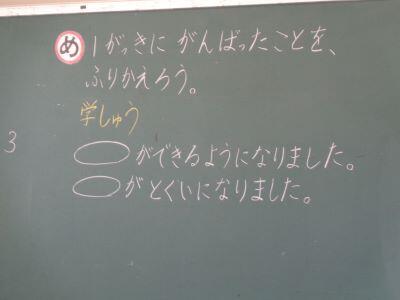 め 1がっきに がんばったことを、
ふりかえろう。
学しゅう
3
◯ができるようになりました。
◯がとくいになりました。